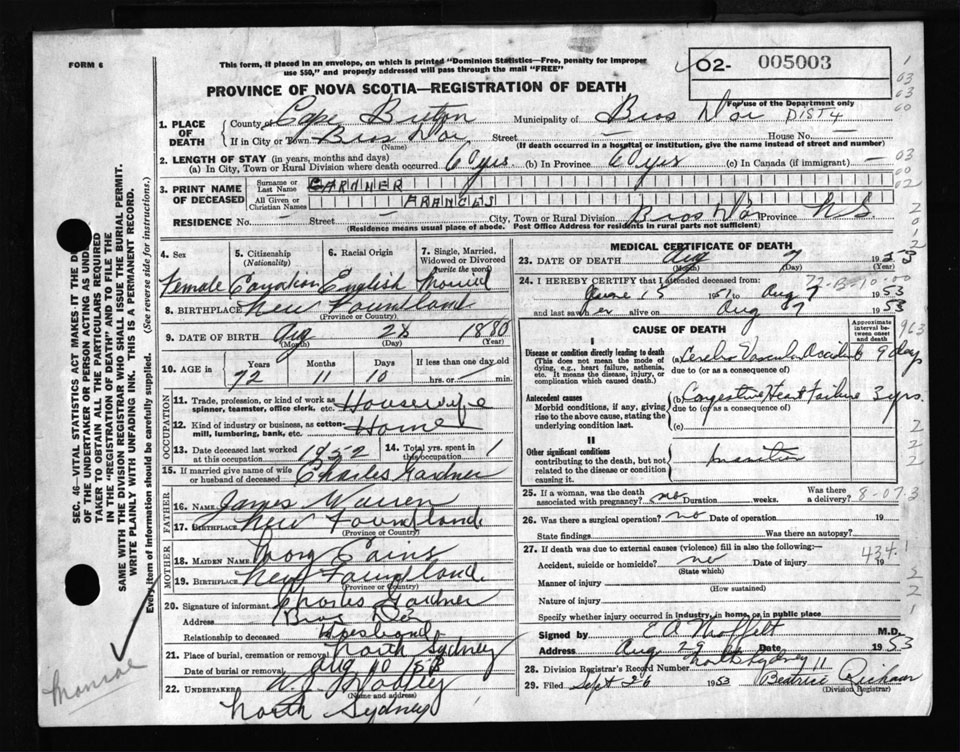 FORM 6
This form, if placed in an envelope, on which is printed "Dominion Statistics—Free, penalty for improper
use $50," and properly addressed will pass through the mail "FREE"
02- 005003
For use of the Department only
PROVINCE OF NOVA SCOTIA—REGISTRATION OF DEATH
1. PLACE OF DEATH
County of Cape Breton Municipality of Bras D'or DIST 4
If in City or Town Bras D'or Street — House No. —
(Name) (If death occurred in a hospital or institution, give the name instead of street and number)
2. LENGTH OF STAY (in years, months and days)
(a) In City, Town or Rural Division where death occurred 60 yrs (b) In Province 60 yrs (c) In Canada (if immigrant) —
3. PRINT NAME OF DECEASED
Surname or Last Name GARDNER
All Given or Christian Names FRANCES
RESIDENCE No. — Street — City, Town or Rural Division Bras D'or Province N.S.
(Residence means usual place of abode. Post Office Address for residents in rural parts not sufficient)
4. Sex Female
5. Citizenship (Nationality) Canadian
6. Racial Origin English
7. Single, Married, Widowed or Divorced (write the word) Married
8. BIRTHPLACE New Foundland
(Province or Country)
9. DATE OF BIRTH Aug 28 1880
(Month) (Day) (Year)
10. AGE in Years Months Days If less than one day old
72 11 10 hrs. or min.
OCCUPATION
11. Trade, profession, or kind of work as spinner, teamster, office clerk, etc. Housewife
12. Kind of industry or business, as cotton-mill, lumbering, bank, etc. Home
13. Date deceased last worked at this occupation 1952
14. Total yrs. spent in this occupation 1
15. If married give name of wife or husband of deceased Charles Gardner
FATHER
16. NAME James Warren
17. BIRTHPLACE New Foundland
(Province or Country)
MOTHER
18. MAIDEN NAME
19. BIRTHPLACE New Foundland
(Province or Country)
20. Signature of informant Charles Gardner
Address Bras D'or
Relationship to deceased Husband
21. Place of burial, cremation or removal North Sydney
Date of burial or removal Aug 10 53
22. UNDERTAKER
(Name and address)
North Sydney
MEDICAL CERTIFICATE OF DEATH
23. DATE OF DEATH Aug 7 1953
(Month) (Day) (Year)
24. I HEREBY CERTIFY that I attended deceased from:
June 15 to Aug 7 1953
and last saw her alive on Aug 7 1953
CAUSE OF DEATH
Approximate interval between onset and death
I
Disease or condition directly leading to death
(This does not mean the mode of dying, e.g., heart failure, asthenia, etc. It means the disease, injury, or complication which caused death.)
(a) Cerebro Vascular Accident 9 days
due to (or as a consequence of)
Antecedent causes
Morbid conditions, if any, giving rise to the above cause, stating the underlying condition last.
(b) Congestive Heart Failure 3 yrs.
due to (or as a consequence of)
(c)
II
Other significant conditions
contributing to the death, but not related to the disease or condition causing it.
25. If a woman, was the death associated with pregnancy? no Duration weeks. Was there a delivery?
8-07.3
26. Was there a surgical operation? no Date of operation 19
State findings Was there an autopsy?
27. If death was due to external causes (violence) fill in also the following:—
434.1
Accident, suicide or homicide? no Date of injury 19
(State which)
Manner of injury
(How sustained)
Nature of injury
Specify whether injury occurred in industry, in home, or in public place
Signed by E A Moffett M.D.
Address Date Aug 29 1953
North Sydney
28. Division Registrar's Record Number 11
29. Filed Sept 26 1953 Beatrice
(Division Registrar)
SEC. 46—VITAL STATISTICS ACT MAKES IT THE DU
OF THE UNDERTAKER OR PERSON ACTING AS UND
TAKER TO OBTAIN ALL THE PARTICULARS REQUIRED
IN THE "REGISTRATION OF DEATH" AND TO FILE THE
SAME WITH THE DIVISION REGISTRAR WHO SHALL ISSUE THE BURIAL PERMIT.
WRITE PLAINLY WITH UNFADING INK. THIS IS A PERMANENT RECORD.
Every item of information should be carefully supplied. (See reverse side for instructions.)